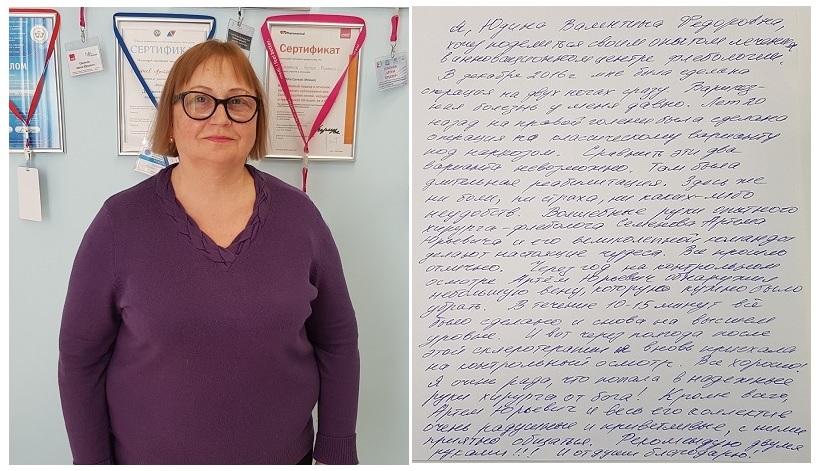 ДИПЛОМ
СЕРТИФИКАТ
Сертификат
Я, Юдина Валентина Федоровна,
хочу поделиться своим опытом лечения
в инновационном центре флебологии.
В декабре 2016г мне была сделана
операция на двух ногах сразу. Варикоз-
ная болезнь у меня давно. Лет 20
назад на правой голени была сделана
операция по классическому варианту
под наркозом. Сравнить эти два
варианта невозможно. Там была
длительная реабилитация. Здесь же
ни боли, ни страха, ни каких-либо
неудобств. Волшебные руки опытного
хирурга-флеболога Семенова Артёма
Юрьевича и его великолепной команды
делают настоящие чудеса. Все прошло
отлично. Через год на контрольном
осмотре Артём Юрьевич обнаружил
небольшую вену, которую нужно было
убрать. В течение 10-15 минут всё
было сделано и снова на высшем
уровне. И вот через полгода после
этой склеротерапии я вновь приехала
на контрольный осмотр. Все хорошо!
Я очень рада, что попала в надежные
руки хирурга от бога! Кроме всего,
Артём Юрьевич и весь его коллектив
очень радушные и приветливые, с ними
приятно общаться. Рекомендую двумя
руками!!! И от души благодарю!!